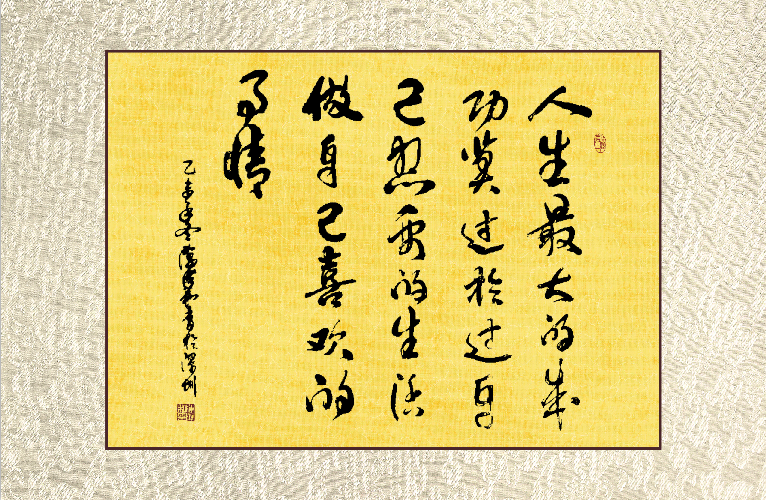 人生最大的成
功莫过於过自
己想要的生活
做自己喜欢的
事情
乙亥年冬
书於深圳